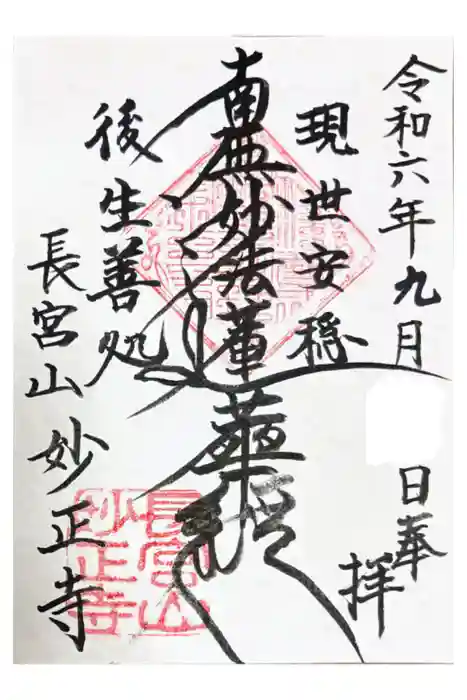 令和六年九月 日奉拝
現世安穏
南無妙法蓮華経
後生善処
長宮山妙正寺
長宮山
妙正寺